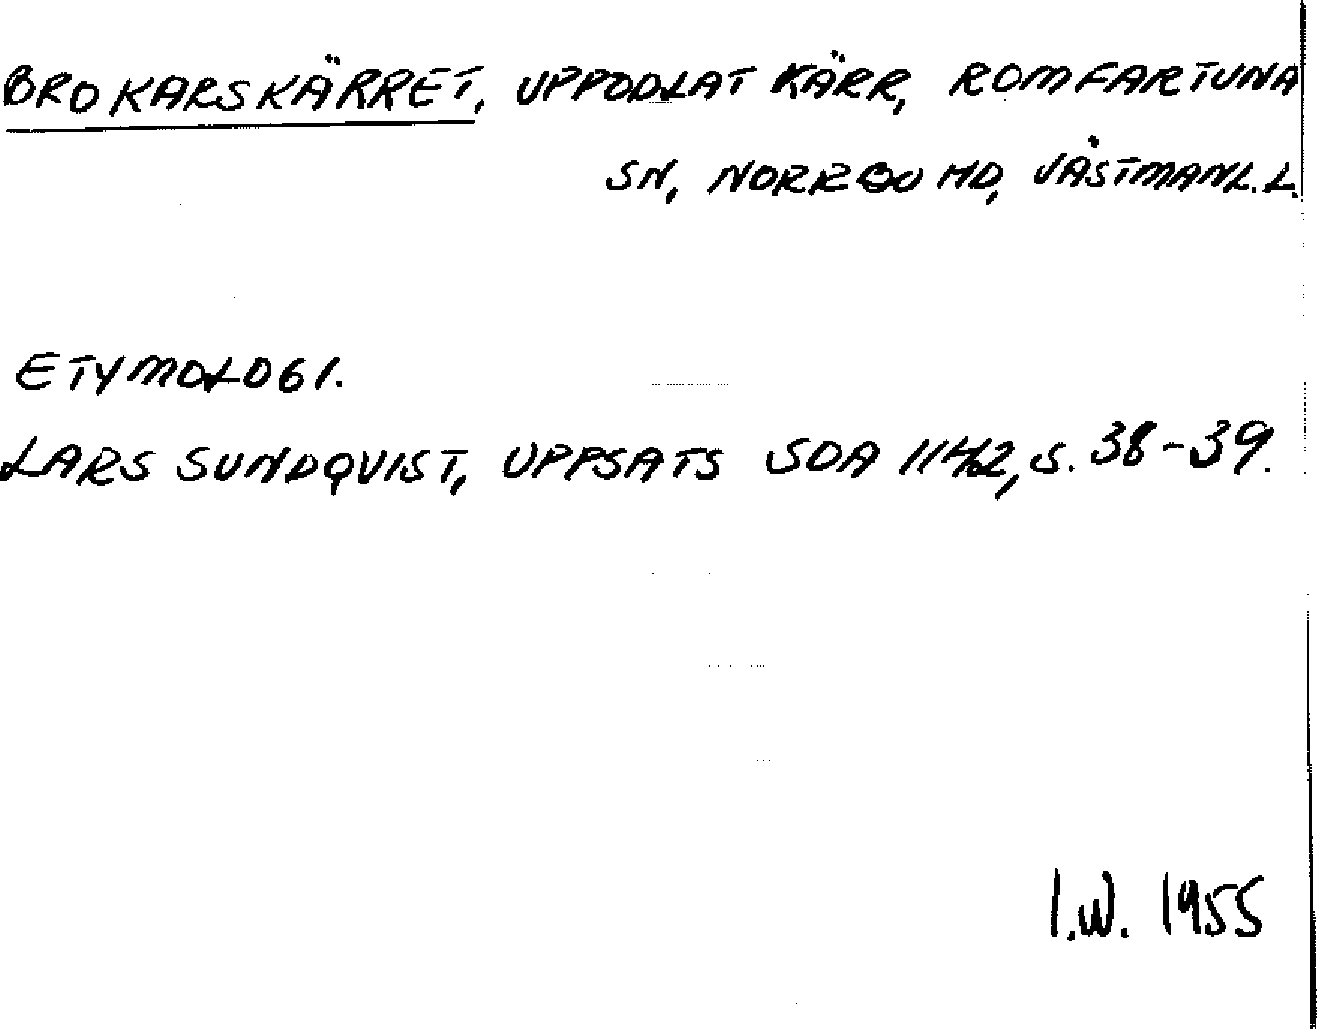 BROKARSKÄRRET, UPPODLAT KÄRR, ROMFARTUNA
SN, NORRBO HD, VÄSTMANL. L.
ETYMOLOGI.
LARS SUNDQVIST, UPPSATS SOA 1142, S. 38-39.
I.W. 1955